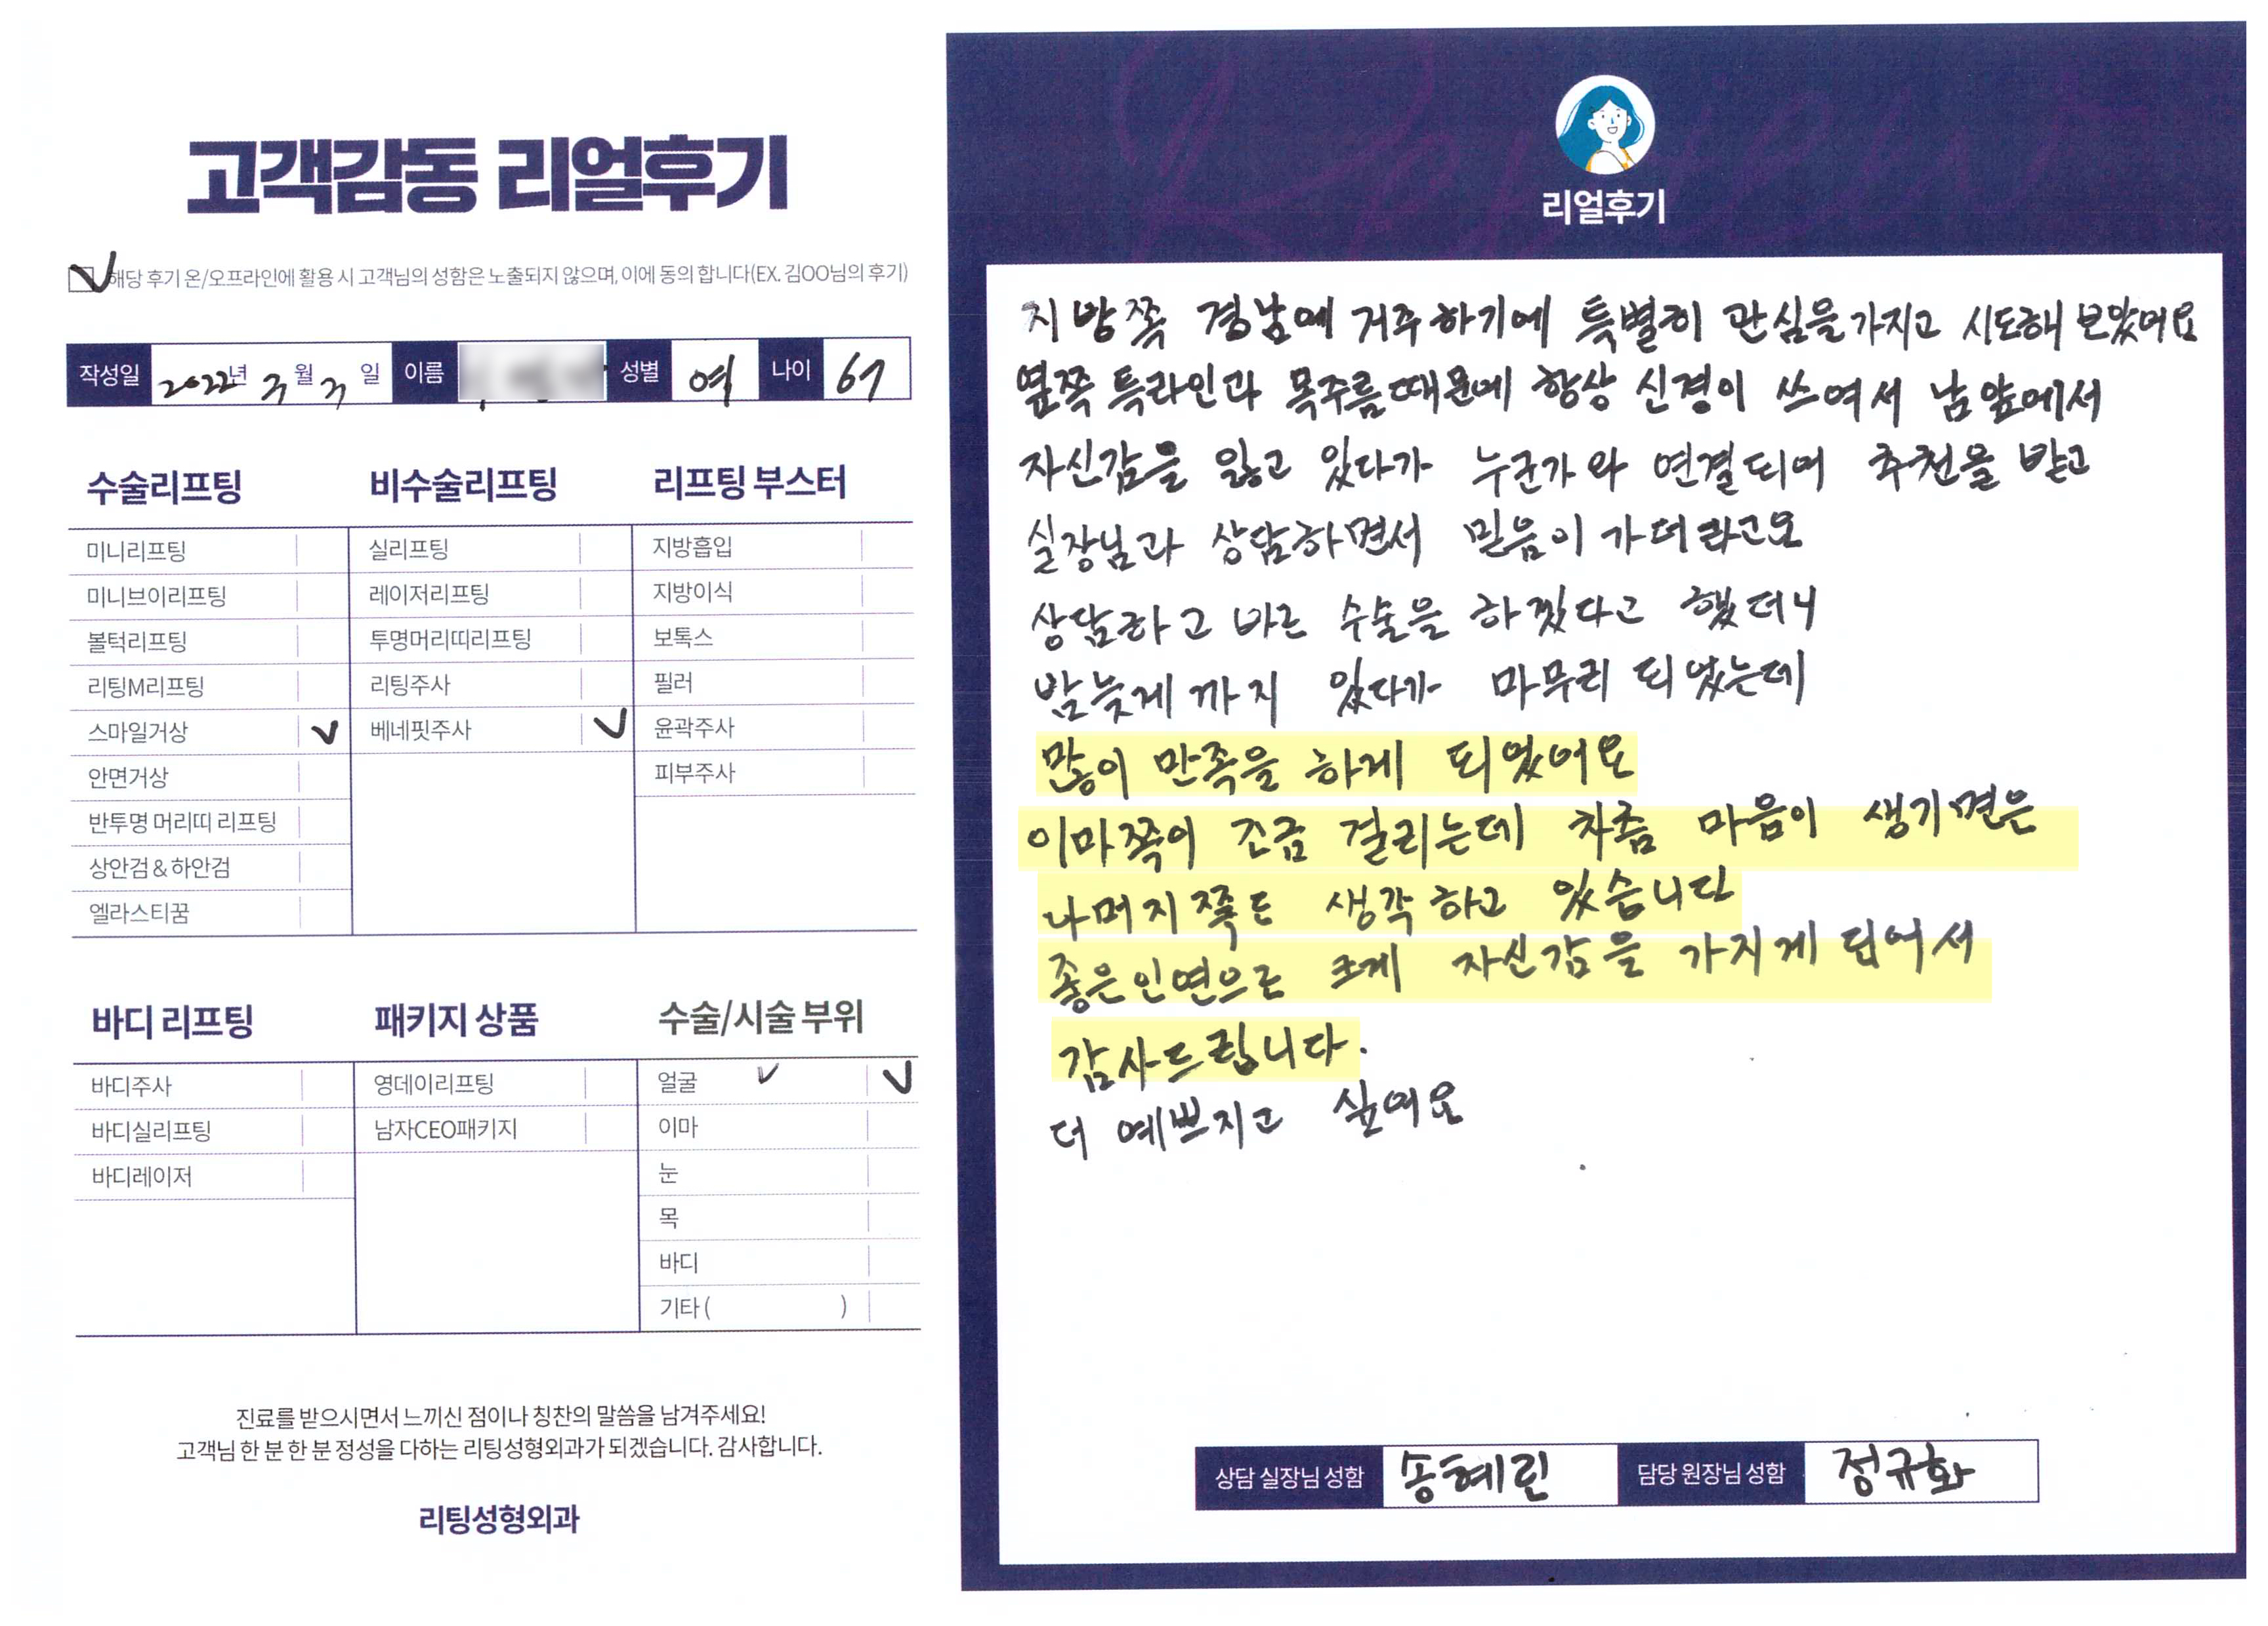 고객감동 리얼후기
해당 후기 온/오프라인에 활용 시 고객님의 성함은 노출되지 않으며, 이에 동의 합니다(EX. 김OO님의 후기)
작성일 2022년 3월 3일 이름 성별 여 나이 67
수술리프팅 비수술리프팅 리프팅 부스터
미니리프팅 실리프팅 지방흡입
미니브이리프팅 레이저리프팅 지방이식
볼턱리프팅 투명머리띠리프팅 보톡스
리팅M리프팅 리팅주사 필러
스마일거상 베네핏주사 윤곽주사
안면거상 피부주사
반투명 머리띠 리프팅
상안검 & 하안검
엘라스티꿈
바디 리프팅 패키지 상품 수술/시술 부위
바디주사 영데이리프팅 얼굴
바디실리프팅 남자CEO패키지 이마
바디레이저 눈
목
바디
기타 ( )
진료를 받으시면서 느끼신 점이나 칭찬의 말씀을 남겨주세요!
고객님 한 분 한 분 정성을 다하는 리팅성형외과가 되겠습니다. 감사합니다.
리팅성형외과
리얼후기
지방쪽 경남에 거주하기에 특별히 관심을 가지고 시도해 보았어요
옆쪽 특라인과 목주름때문에 항상 신경이 쓰여서 남 앞에서
자신감을 잃고 있다가 누군가와 연결되어 추천을 받고
실장님과 상담하면서 믿음이 가더라고요
상담하고 바로 수술을 하겠다고 했더니
밤늦게까지 있다가 마무리 되었는데
많이 만족을 하게 되었어요
이마쪽이 조금 걸리는데 차츰 마음이 생기면은
나머지쪽도 생각하고 있습니다
좋은인연으로 크게 자신감을 가지게 되어서
감사드립니다.
더 예쁘지고 싶어요
상담 실장님 성함 송혜린 담당 원장님 성함 정규화